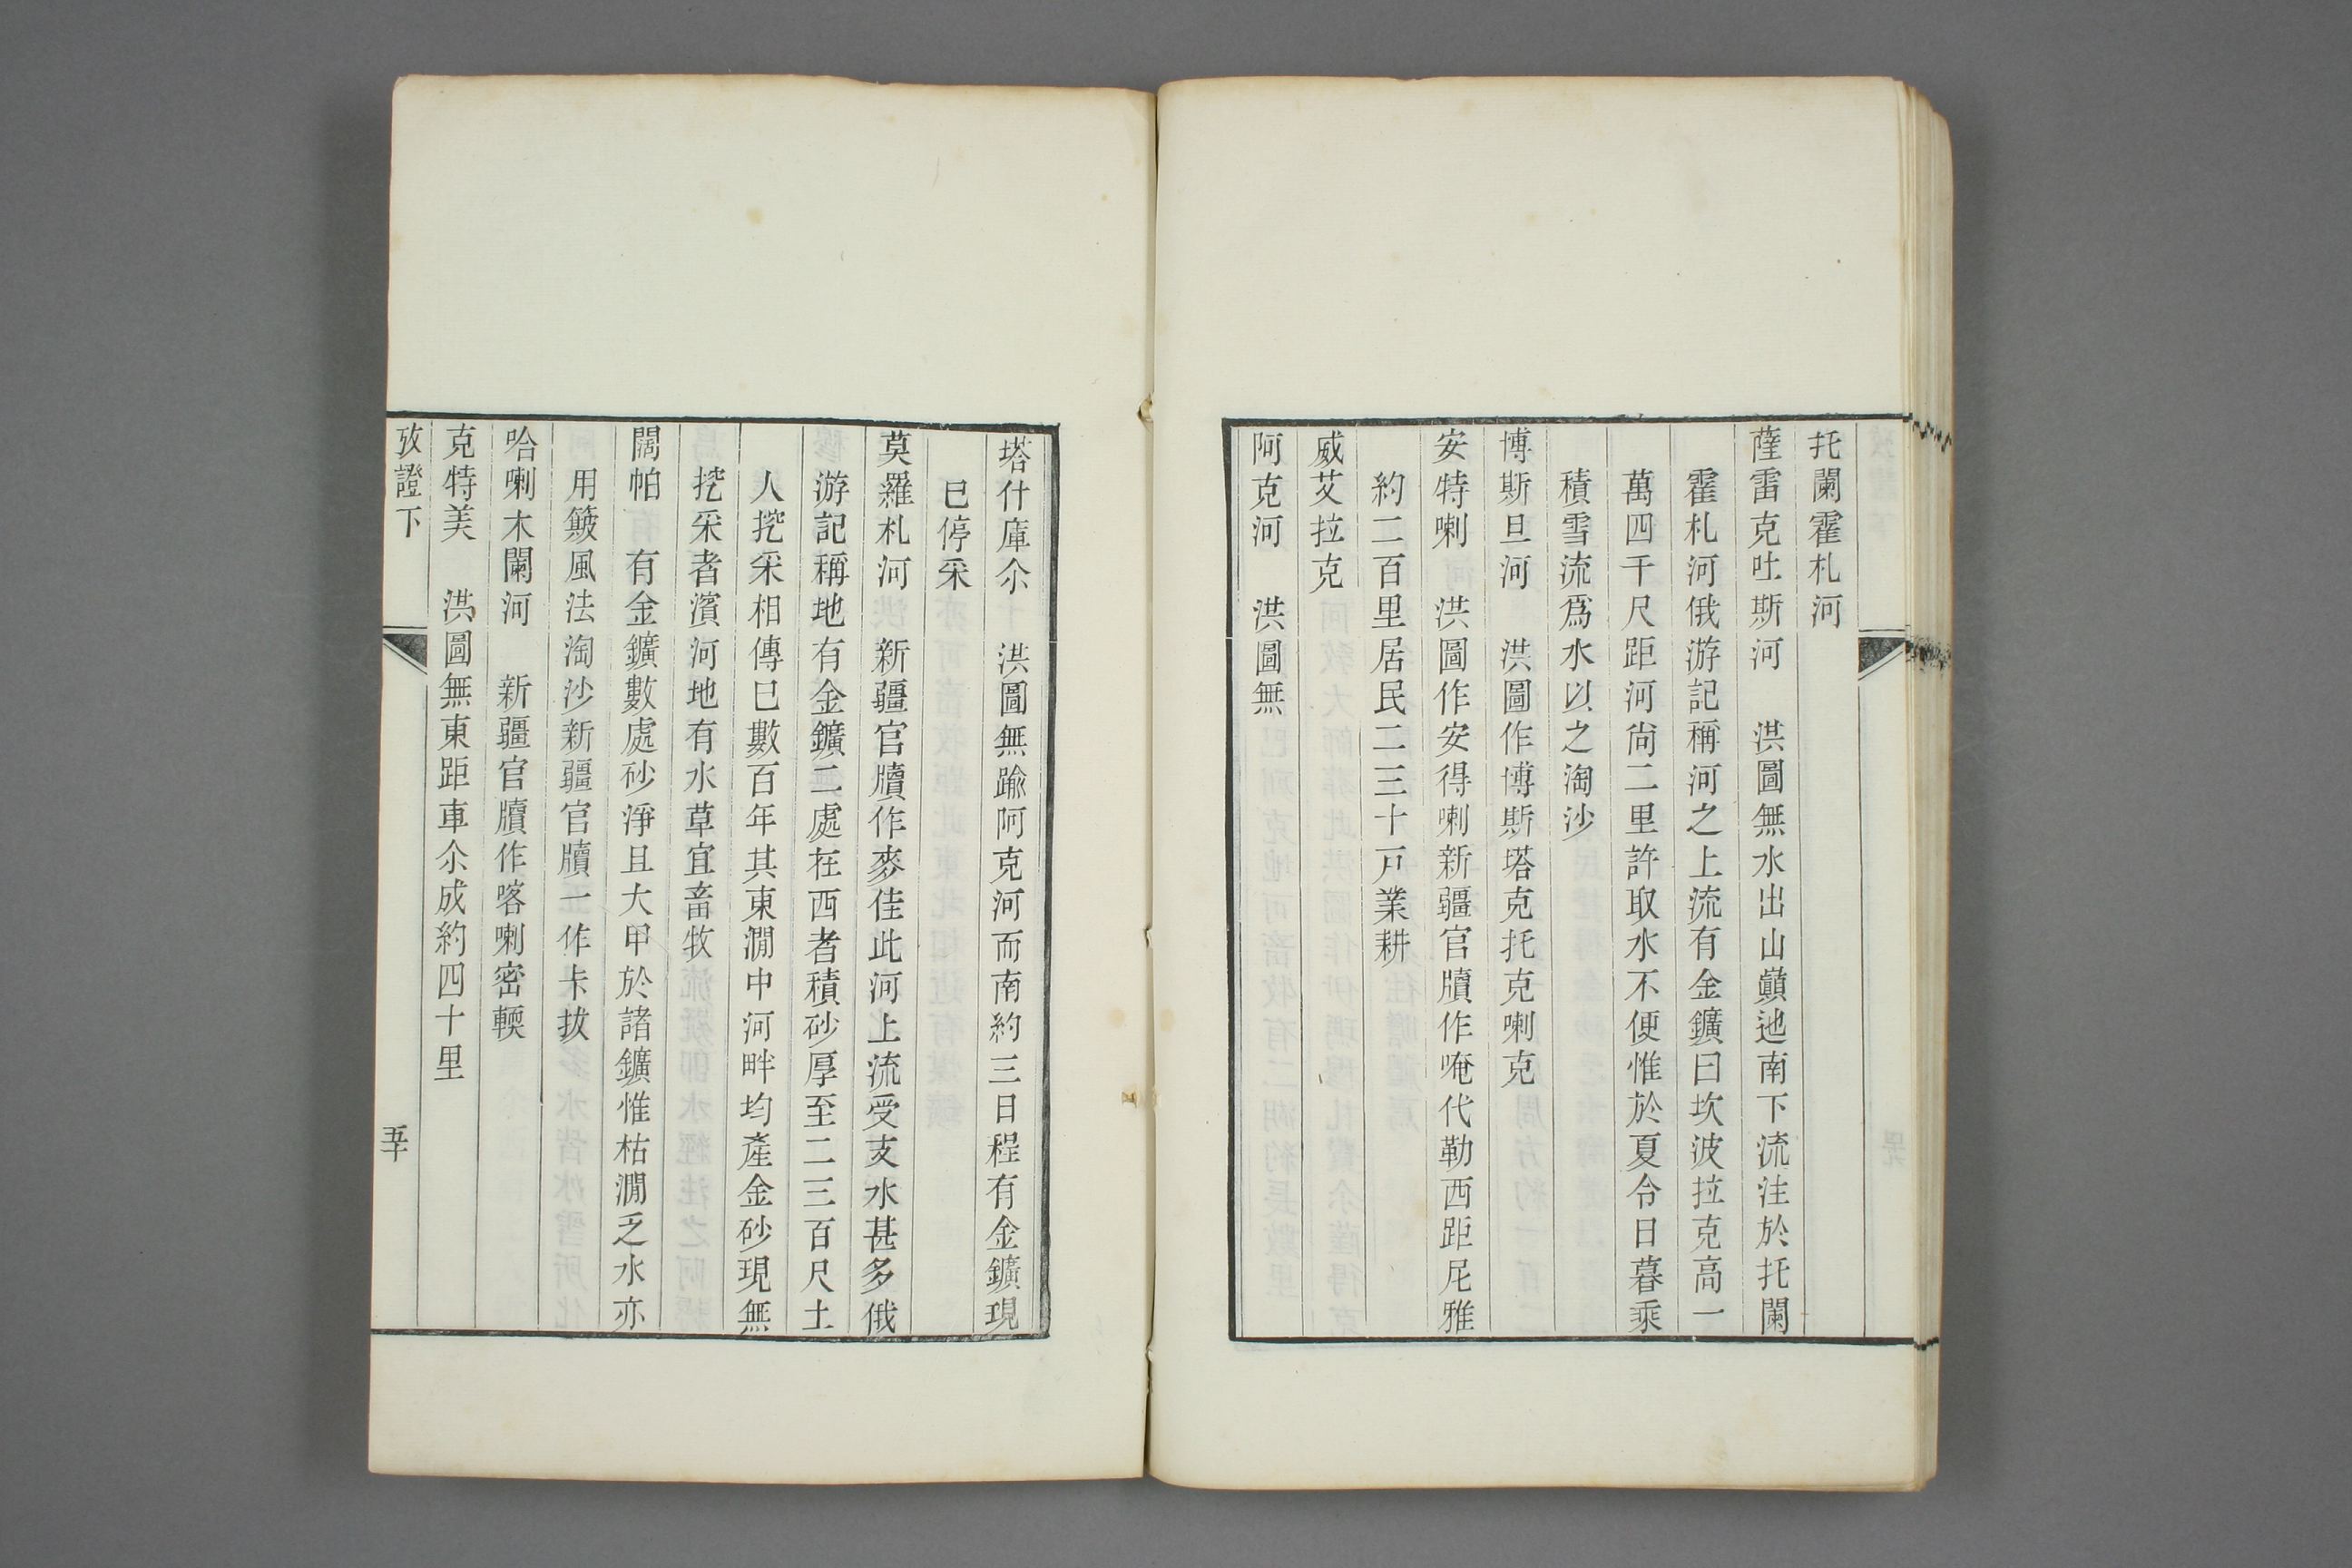 托闌霍札河
薩雷克吐斯河　洪圖無水出山巔迆南下流注於托闌
霍札河俄游記稱河之上流有金鑛曰坎波拉克高一
萬四千尺距河尙二里許取水不便惟於夏令日暮乘
積雪流爲水以之淘沙
博斯旦河　洪圖作博斯塔克托克喇克
安特喇　洪圖作安得喇新疆官牘作唵代勒西距尼雅
約二百里居民二三十戸業耕
威艾拉克
阿克河　洪圖無
塔什庫尒　洪圖無踰阿克河而南約三日程有金鑛現
已停采
莫羅札河　新疆官牘作麥佳此河上流受支水甚多俄
游記稱地有金鑛二處在西者積砂厚至二三百尺土
人挖采相傳已數百年其東澗中河畔均產金砂現無
挖采者濱河地有水草宜畜牧
闊帕　有金鑛數處砂淨且大甲於諸鑛惟枯澗乏水亦
用簸風法淘沙新疆官牘一作卡拔
哈喇木闌河　新疆官牘作喀喇密輭
克特美　洪圖無東距車尒成約四十里
攷證下
五十